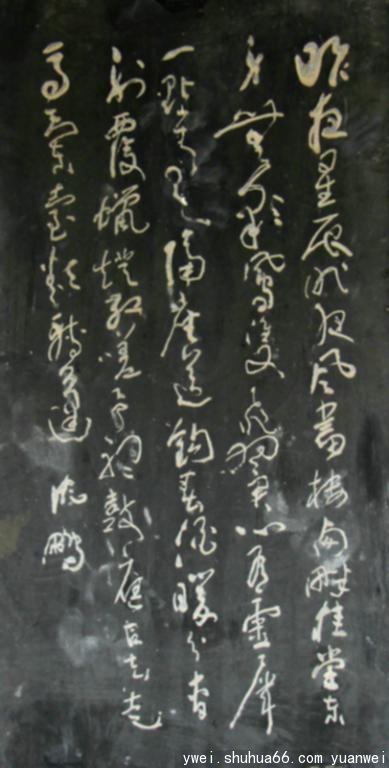 昨夜星辰昨夜风畫樓西畔桂堂东
身無彩鳳雙飛翼心有靈犀
一點通隔座送鈎春酒暖分曹
射覆蠟燈紅嗟余聽鼓應官去走
馬蘭臺類轉蓬 沈鵬
ywei.shuhua66.com yuanwei